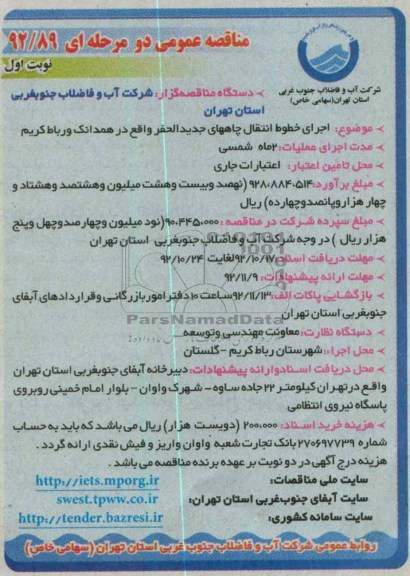 مناقصه عمومی دو مرحله ای ۹۲/۸۹
نوبت اول
شرکت آب و فاضلاب جنوب غربی
استان تهران(سهامی خاص)
دستگاه مناقصه‌گزار: شرکت آب و فاضلاب جنوبغربی
استان تهران
موضوع: اجرای خطوط انتقال چاههای جدیدالحفر واقع در همدانک ورباط کریم
مدت اجرای عملیات: ۲ماه شمسی
محل تامین اعتبار: اعتبارات جاری
مبلغ برآورد: ۹۲۸،۸۸۴،۵۱۴ (نهصد وبیست وهشت میلیون وهشتصد وهشتاد و
چهار هزار وپانصدوچهارده) ریال
مبلغ سپرده شرکت در مناقصه: ۹۰،۴۴۵،۰۰۰(نود میلیون وچهارصدوچهل وپنج
هزار ریال ) در وجه شرکت آب و فاضلاب جنوبغربی استان تهران
مهلت دریافت اسناد: ۹۲/۱۰/۱۷لغایت ۹۲/۱۰/۲۴
مهلت ارائه پیشنهادات: ۹۲/۱۱/۹
بازگشایی پاکات الف: ۹۲/۱۱/۱۳ساعت ۱۰ دفتر امور بازرگانی و قراردادهای آبفای
جنوبغربی استان تهران
ParsNamadData
دستگاه نظارت: معاونت مهندسی وتوسعه
محل اجراء: شهرستان رباط کریم - گلستان
محل دریافت اسنادوارائه پیشنهادات: دبیرخانه آبفای جنوبغربی استان تهران
واقع درتهران کیلومتر ۲۲ جاده ساوه - شهرک واوان - بلوار امام خمینی روبروی
پاسگاه نیروی انتظامی
هزینه خرید اسناد: ۲۰۰،۰۰۰ (دویست هزار) ریال می باشد که باید به حساب
شماره ۲۷۰۶۹۷۷۳۹ بانک تجارت شعبه واوان واریز و فیش نقدی ارائه گردد .
هزینه درج آگهی در دو نوبت بر عهده برنده مناقصه می باشد .
سایت ملی مناقصات: http://iets.mporg.ir
سایت آبفای جنوب‌غربی استان تهران: swest.tpww.co.ir
سایت سامانه کشوری: http://tender.bazresi.ir
روابط عمومی شرکت آب و فاضلاب جنوب غربی استان تهران (سهامی خاص)